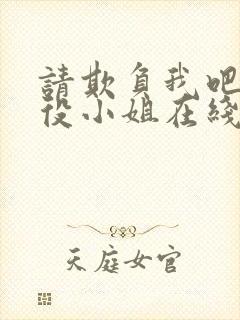 請欺負我吧
役小姐在綫
天庭女官